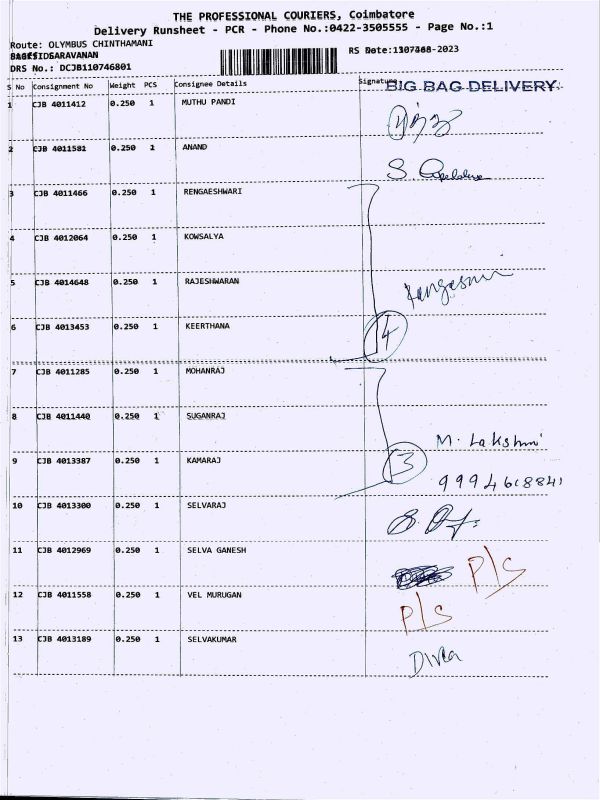 THE PROFESSIONAL COURIERS, Coimbatore
Delivery Runsheet - PCR - Phone No.:0422-3505555 - Page No.:1
Route: OLYMBUS CHINTHAMANI
SARAVANAN
RS Date: -2023
DRS No.: DCJB110746801
S No Consignment No Weight PCS Consignee Details Signature
BIG BAG DELIVERY
1 CJB 4011412 0.250 1 MUTHU PANDI
2 CJB 4011581 0.250 1 ANAND
S.
3 CJB 4011466 0.250 1 RENGAESHWARI
4 CJB 4012064 0.250 1 KOWSALYA
5 CJB 4014648 0.250 1 RAJESHWARAN
6 CJB 4013453 0.250 1 KEERTHANA
4
7 CJB 4011285 0.250 1 MOHANRAJ
8 CJB 4011440 0.250 1 SUGANRAJ
M. Lakshmi
9 CJB 4013387 0.250 1 KAMARAJ
3
9994618841
10 CJB 4013300 0.250 1 SELVARAJ
11 CJB 4012969 0.250 1 SELVA GANESH
P/S
12 CJB 4011558 0.250 1 VEL MURUGAN
P/S
13 CJB 4013189 0.250 1 SELVAKUMAR